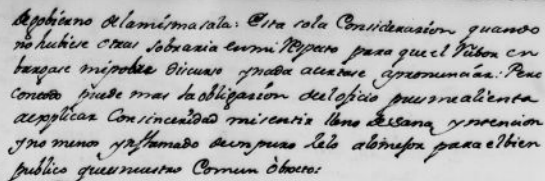 de gobierno de la misma sala: Esta sola Consideracion quando
no hubiese otras sobraria en mi respeto para que el Rubor en
bargase mi pobre Discurso y nada acertase a pronunciar: Pero
con todo puede mas la obligazion del oficio pues me alienta
a explicar Con sinceridad mi sentir lleno de sana yntencion
y no menos ynflamado de un puro zelo a lo mejor para el bien
publico que es nuestro Comun obxeto: